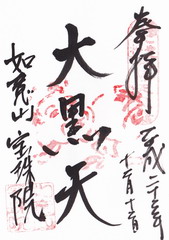 奉拝
平成二十三年
十二月十二日
大黒天
如意山
宝珠院